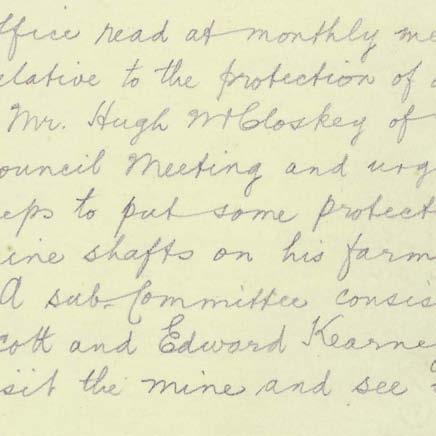 ffice read at monthly me
elative to the protection of
Mr. Hugh McCloskey of
ouncil Meeting and urg
eps to put some protect
ine shafts on his farm
A sub-Committee consis
cott and Edward Kearne
isit the mine and see